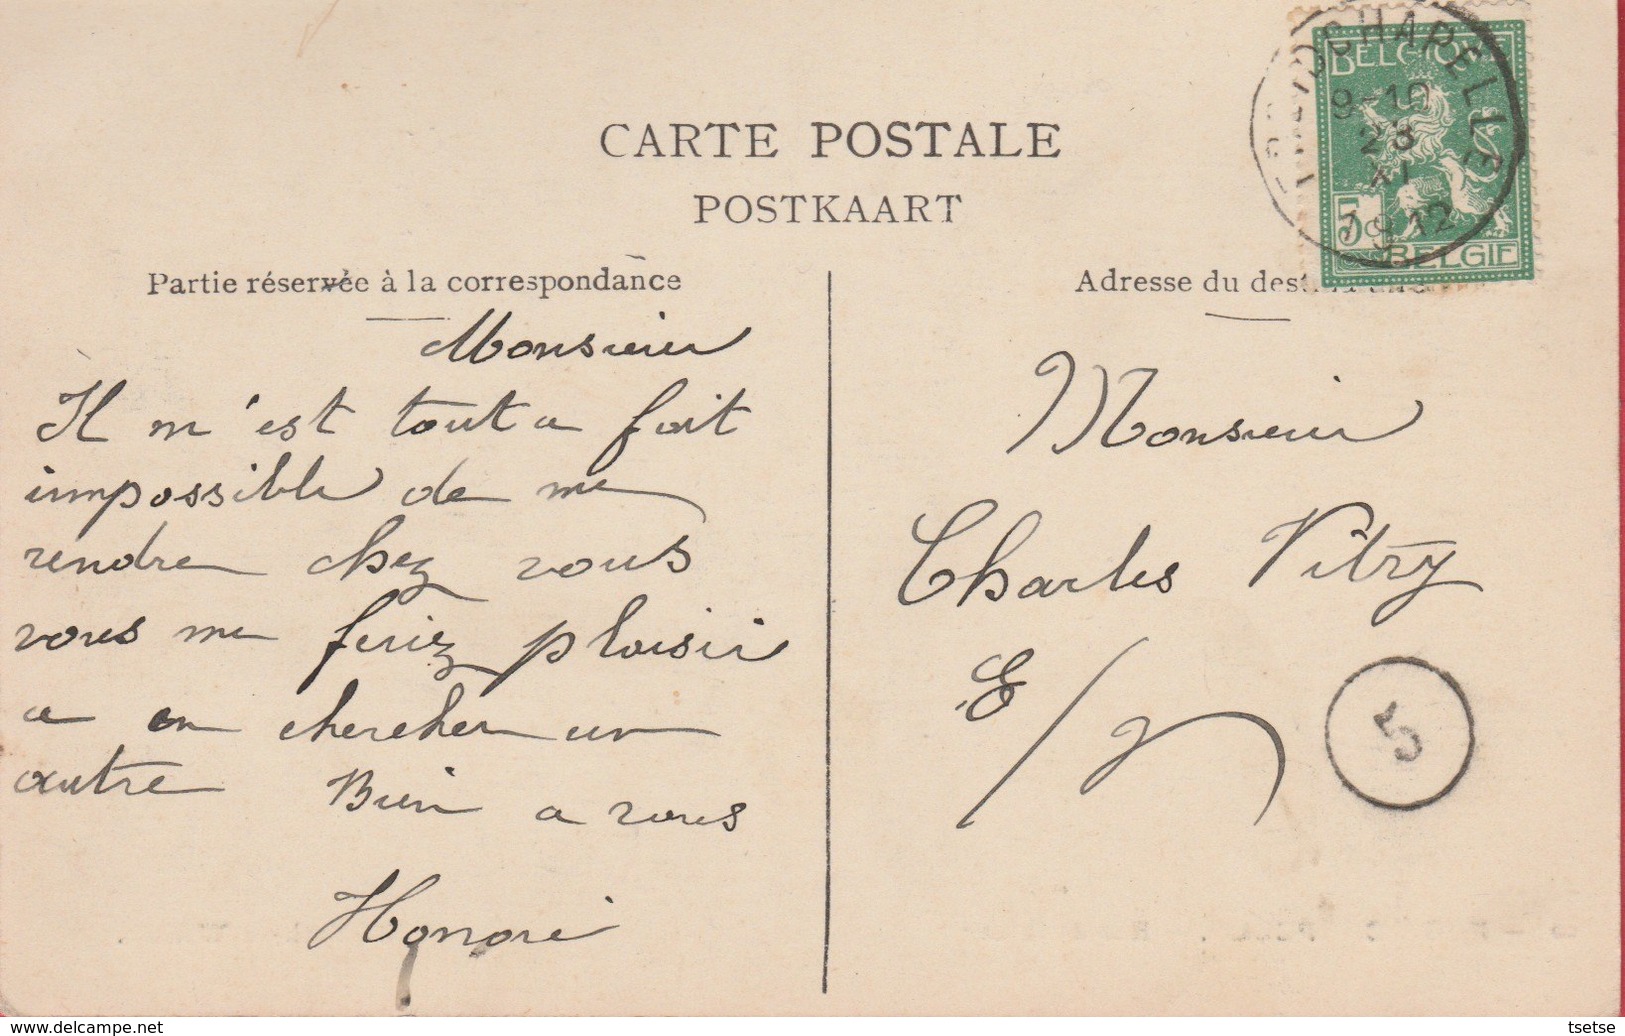 CARTE POSTALE
POSTKAART
Partie réservée à la correspondance
Monsieur
Il m'est tout a fait
impossible de me
rendre chez vous
vous me feriez plaisir
a en chercher un
autre Bien a vous
Honoré
Adresse du
BELGIQUE
CHAPELLE
9-10
28
XI
1912
5
BELGIE
Monsieur
Charles Vitry
E/V
5
delcampe.net
tsetse